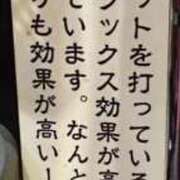 ットを打っている
ラックス効果が高
ています。なんと
りも効果が高いー